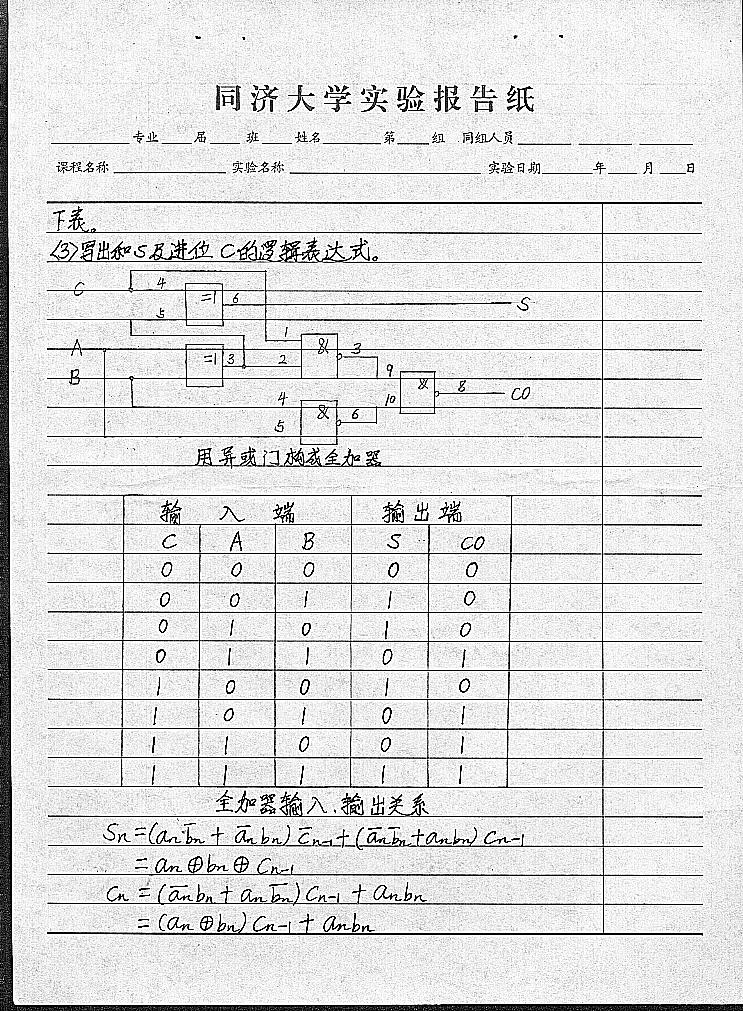 同济大学实验报告纸
专业 届 班 姓名 第 组 同组人员
课程名称 实验名称 实验日期 年 月 日
下表。
(3)写出和S及进位C的逻辑表达式。
C 4 =1 6 S
5
A =1 3 1 & 3
2 9
B 4 & 6 10 & 8 CO
5
用异或门构成全加器
输入端 输出端
C A B S CO
0 0 0 0 0
0 0 1 1 0
0 1 0 1 0
0 1 1 0 1
1 0 0 1 0
1 0 1 0 1
1 1 0 0 1
1 1 1 1 1
全加器输入、输出关系
Sn=(an b̄n + ān bn) C̄n-1+(ān b̄n+an bn) Cn-1
=an⊕bn⊕Cn-1
Cn=(ān bn+an b̄n)Cn-1+an bn
=(an⊕bn)Cn-1+an bn